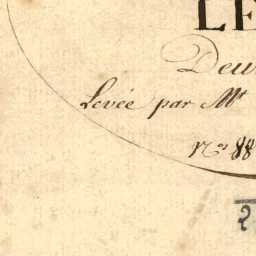 LE
Deu
Levée par Mt
Nos 88
2